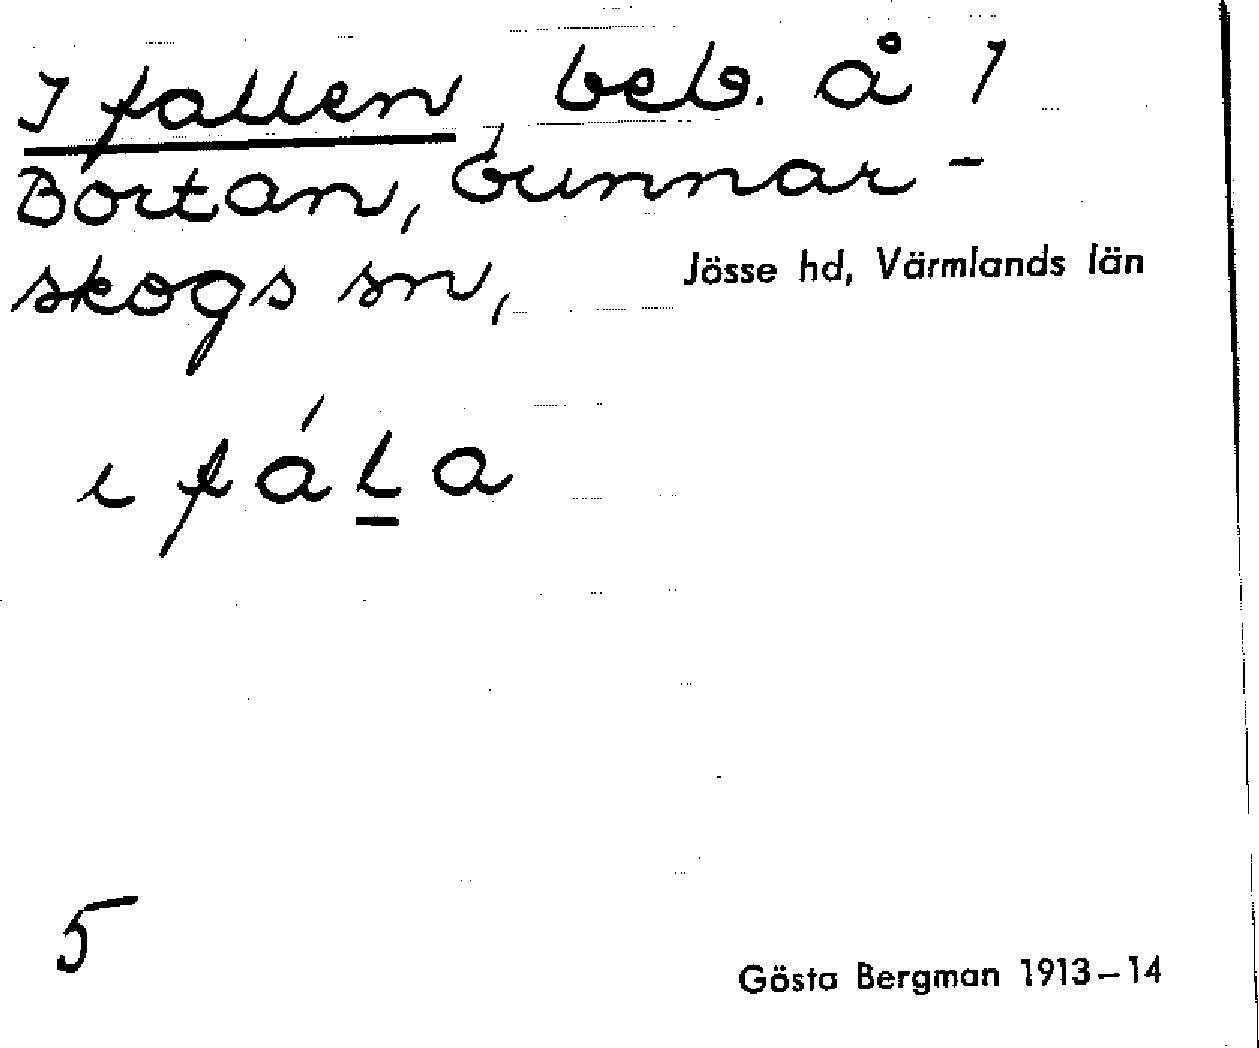 I fallen, beb. å 1
Bortan, Gunnar-
skogs sn,
Jösse hd, Värmlands län
ı fáʟa
5
Gösta Bergman 1913–14